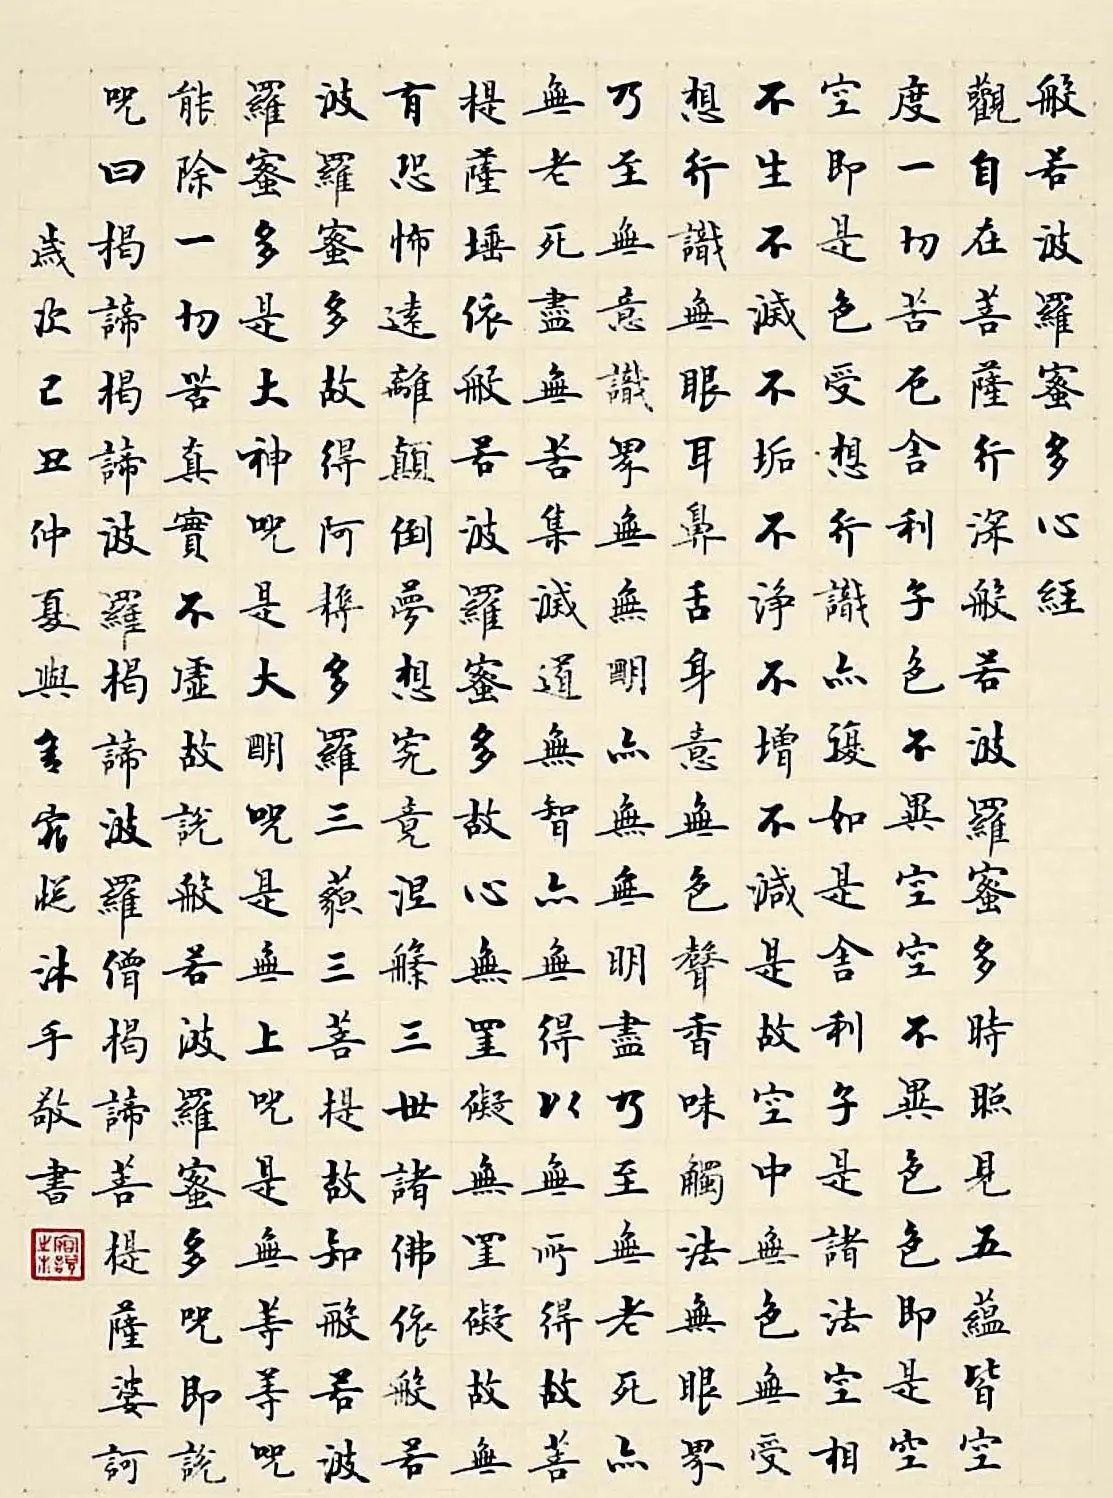 般若波羅蜜多心經
觀自在菩薩行深般若波羅蜜多時照見五蘊皆空
度一切苦厄舍利子色不異空空不異色色即是空
空即是色受想行識亦復如是舍利子是諸法空相
不生不滅不垢不淨不增不減是故空中無色無受
想行識無眼耳鼻舌身意無色聲香味觸法無眼界
乃至無意識界無無明亦無無明盡乃至無老死亦
無老死盡無苦集滅道無智亦無得以無所得故菩
提薩埵依般若波羅蜜多故心無罣礙無罣礙故無
有恐怖遠離顛倒夢想究竟涅槃三世諸佛依般若
波羅蜜多故得阿耨多羅三藐三菩提故知般若波
羅蜜多是大神咒是大明咒是無上咒是無等等咒
能除一切苦真實不虛故說般若波羅蜜多咒即說
咒曰揭諦揭諦波羅揭諦波羅僧揭諦菩提薩婆訶
歲次己丑仲夏與沐手敬書